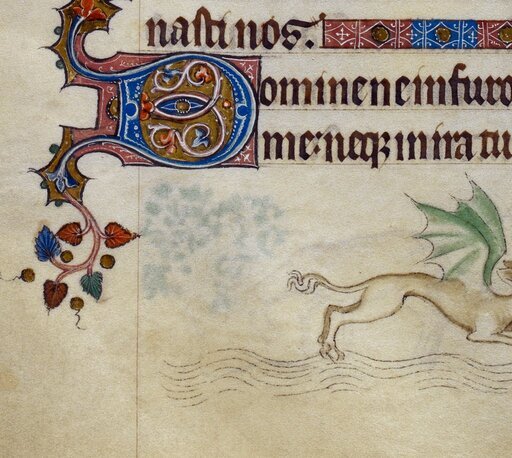 nasti nos:
Domine ne in furo
me: neq; in ira tu